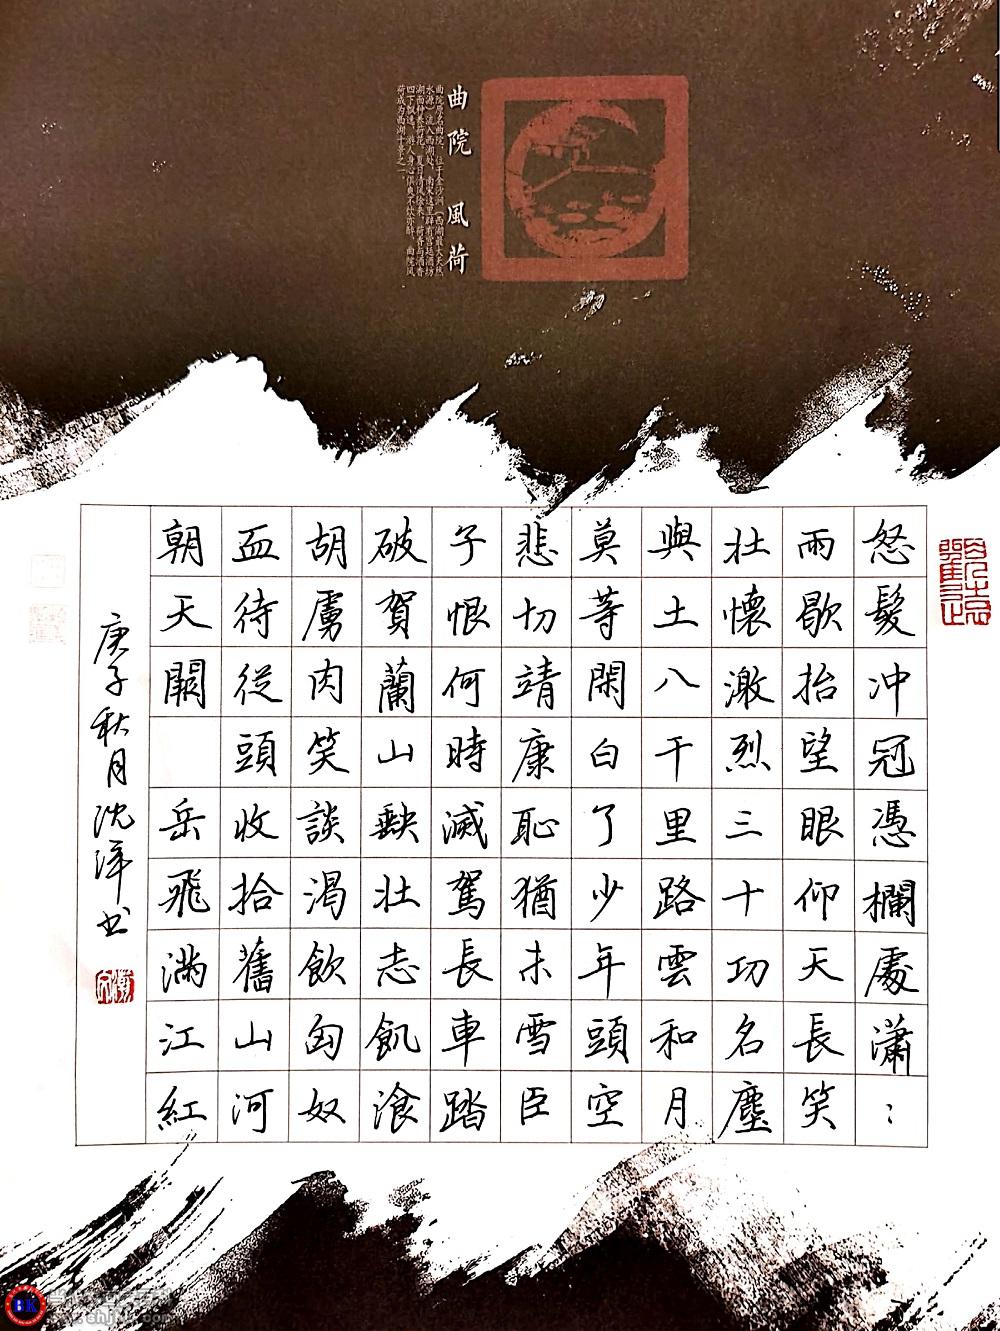 曲院風荷
曲院原名曲院，位于金沙涧（西湖最大天然
水源）流入西湖处，南宋这里辟有宫廷酒坊
湖面种养荷花。夏日清风徐来，荷香与酒香
四下飘逸，游人身心俱爽不饮亦醉。曲院风
荷成为西湖十景之一。
怒髮冲冠憑欄處瀟：
雨歇抬望眼仰天長笑
壯懷激烈三十功名塵
與土八千里路雲和月
莫等閑白了少年頭空
悲切靖康恥猶未雪臣
子恨何時滅駕長車踏
破賀蘭山缺壯志飢湌
胡虜肉笑談渴飲匈奴
血待從頭收拾舊山河
朝天闕 岳飛滿江紅
庚子秋月沈洋书
BK